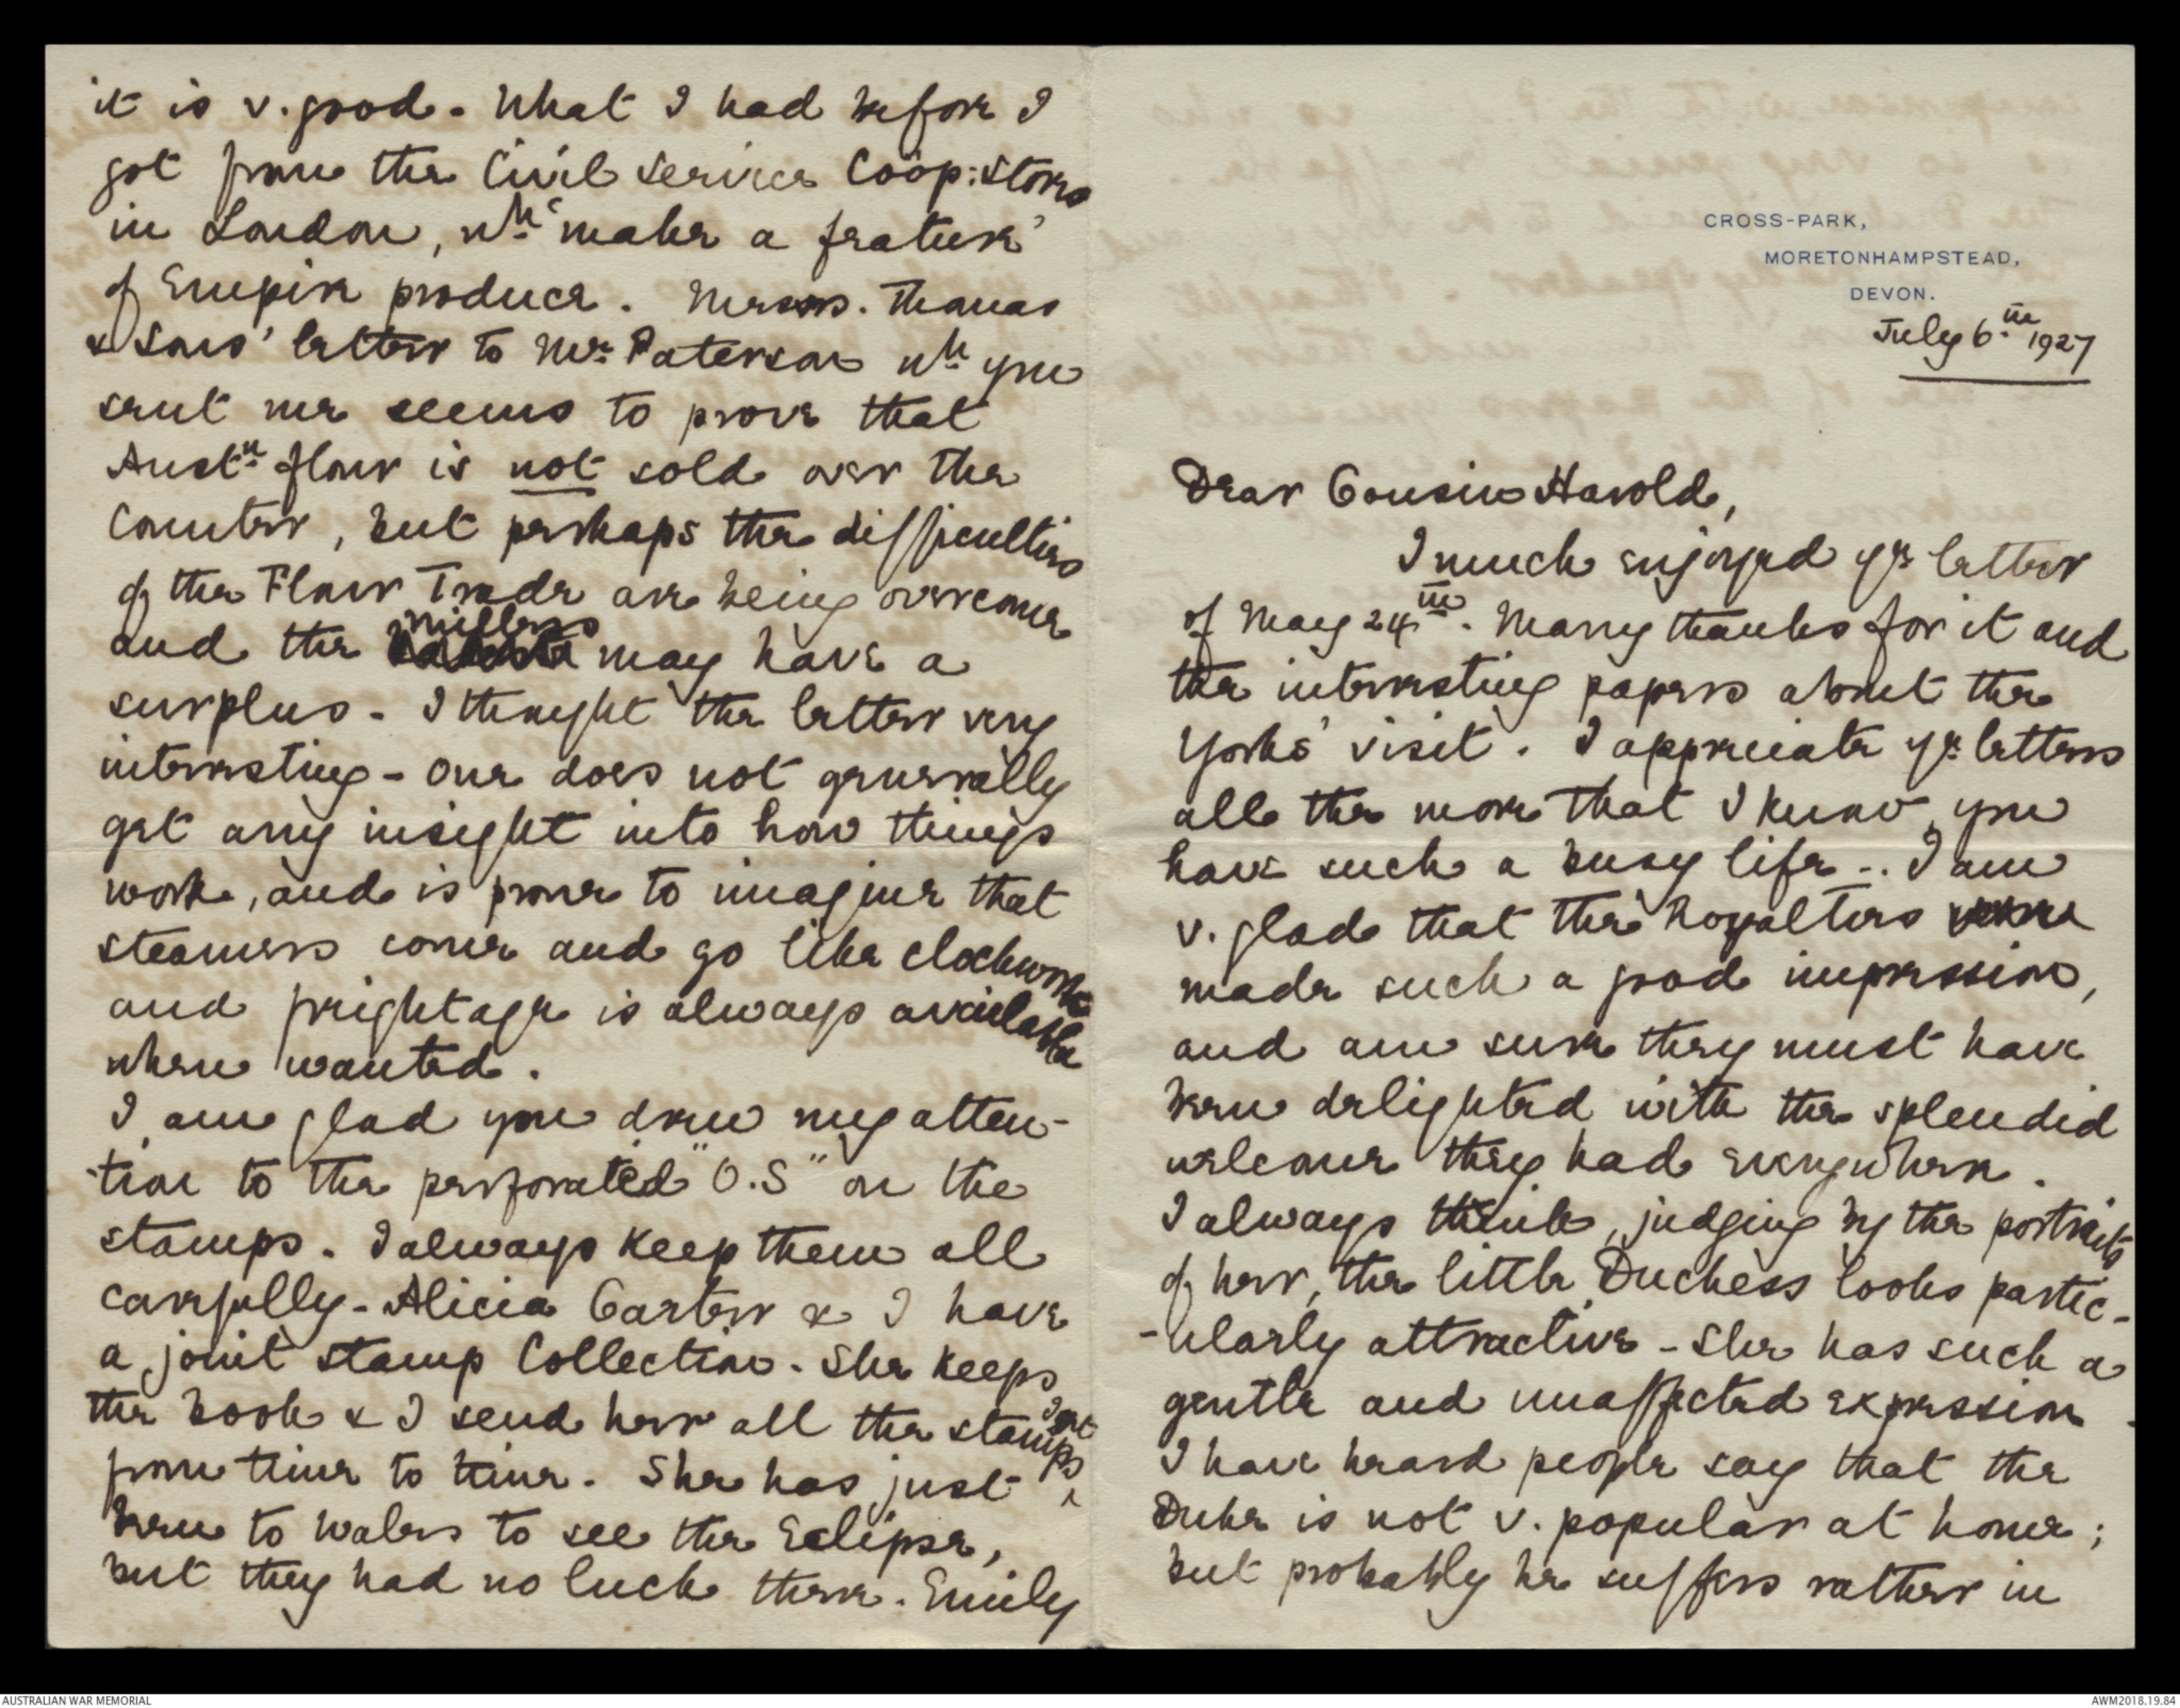 CROSS-PARK,
MORETONHAMPSTEAD,
DEVON.
July 6th 1927
Dear Cousin Harold,
I much enjoyed yr letter
of May 24th. Many thanks for it and
the interesting papers about the
Yorks' visit. I appreciate yr letters
all the more that I know you
have such a busy life -. I am
v. glad that the Royalties
made such a good impression,
and am sure they must have
been delighted with the splendid
welcome they had everywhere.
I always think, judging by the portraits
of her, the little Duchess looks partic-
-ularly attractive - She has such a
gentle and unaffected expression.
I have heard people say that the
Duke is not v. popular at home;
but probably he suffers rather in
it is v. good - What I had before I
got from the Civil Service Coöp: Stores
in London, wh. 'make a feature'
of Empire produce. Messrs. Thomas
& Sons' letter to Mr. Paterson wh. you
sent me seems to prove that
Austn. flour is not sold over the
Counter, but perhaps the difficulties
of the Flour Trade are being overcome
and the millers may have a
surplus - I thought the letter very
interesting - One does not generally
get any insight into how things
work, and is prone to imagine that
steamers come and go like clockwork
and freightage is always available
when wanted.
I am glad you drew my atten-
-tion to the perforated "O.S" on the
stamps. I always keep them all
carefully - Alicia Carter & I have
a joint stamp Collection. She keeps
the book & I send her all the stamps I get
from time to time. She has just
been to Wales to see the Eclipse,
but they had no luck there. Emily
AUSTRALIAN WAR MEMORIAL
AWM2018.19.84